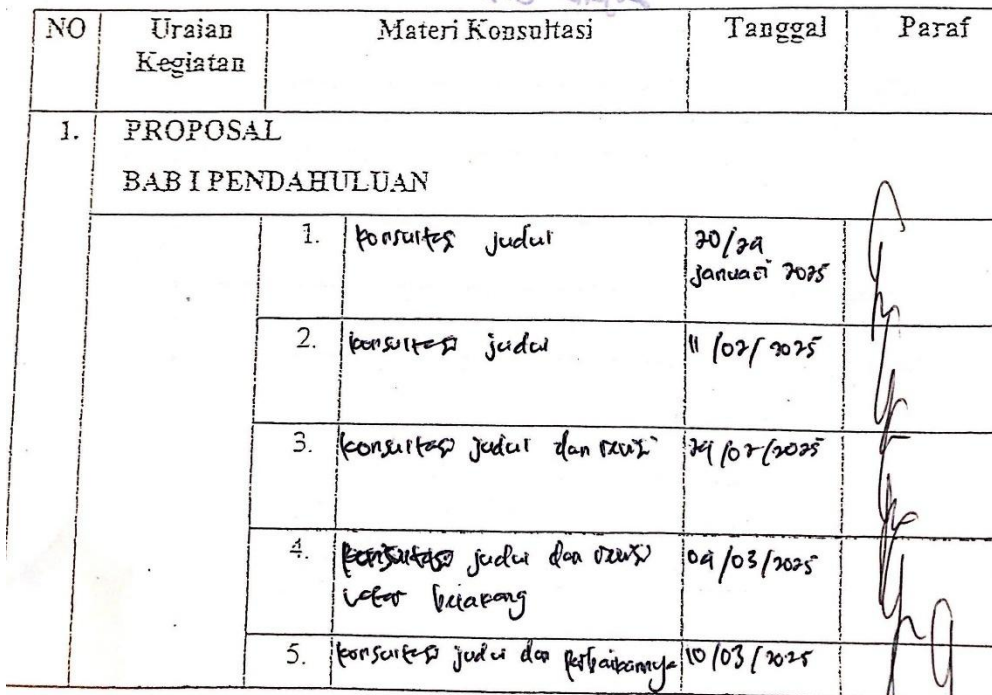 NO Uraian Materi Konsultasi Tanggal Paraf
Kegiatan
1. PROPOSAL
BAB I PENDAHULUAN
1. konsultasi judul 20/
januari 2025
2. konsultasi judul 11/02/2025
3. konsultasi judul dan revisi /02/2025
4. konsultasi judul dan revisi /03/2025
latar belakang
5. konsultasi judul dan perbaikannya 10/03/2025